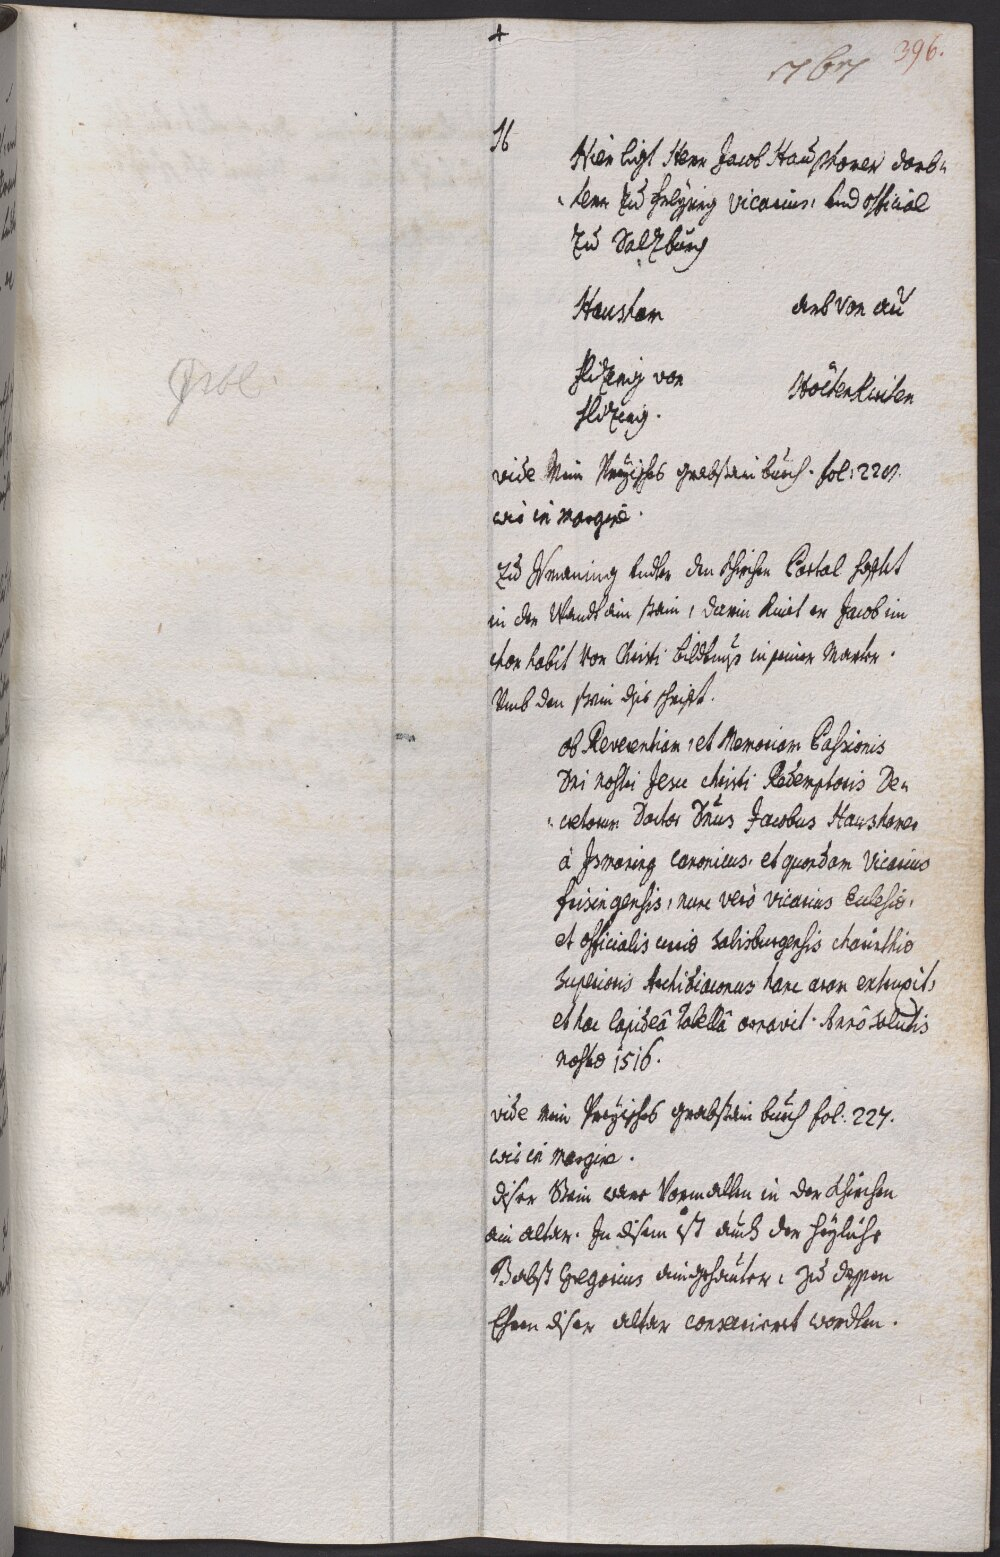 396.
767
16
Hier ligt Herr Jacob Haushamer domb„
„herr zu Freysing vicarius, und official
zu Salzburg
Hausham
von au
von
vide Mein Freysishes grabstain buech. fol: 227.
wie in margine.
Zu Ismaning under den Khirchen Portal steht
in der Wandt ain stain, darin kniet er Jacob im
chor habit vor Christi bildtnus in seiner Marter.
Umb den stain dise schrift.
ob Reverentiam, et Memoriam Passionis
Dni nostri Jesu christi Redemptoris De„
„cretorum Doctor Dñus Jacobus Haushamer
à Ismaning canonicus, et quondam Vicarius
frisingensis, nunc verò vicarius Eclesiæ,
et officialis curiæ salisburgensis charinthiæ
superioris Archidiaconus hanc aram extruxit,
et hac lapideâ tabellâ ornavit. Annô salutis
nostræ 1516.
vide mein Freysishes grabstain buech fol: 227.
wie in margine.
diser Stain ware Vormallen in der Khirchen
ain altar. In disem ist auch der heyliche
Babst Gregorius eingehauter, zu dessen
Ehren diser altar consecriert wordten.